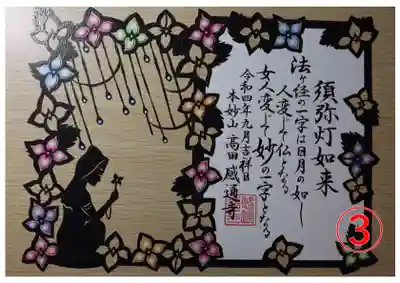 須弥灯如来
法ヶ経の一字は日月の如し
人変じて仏となる
女人変じて妙の一字となる
令和四年九月吉祥日
本妙山 高田 感通寺
③